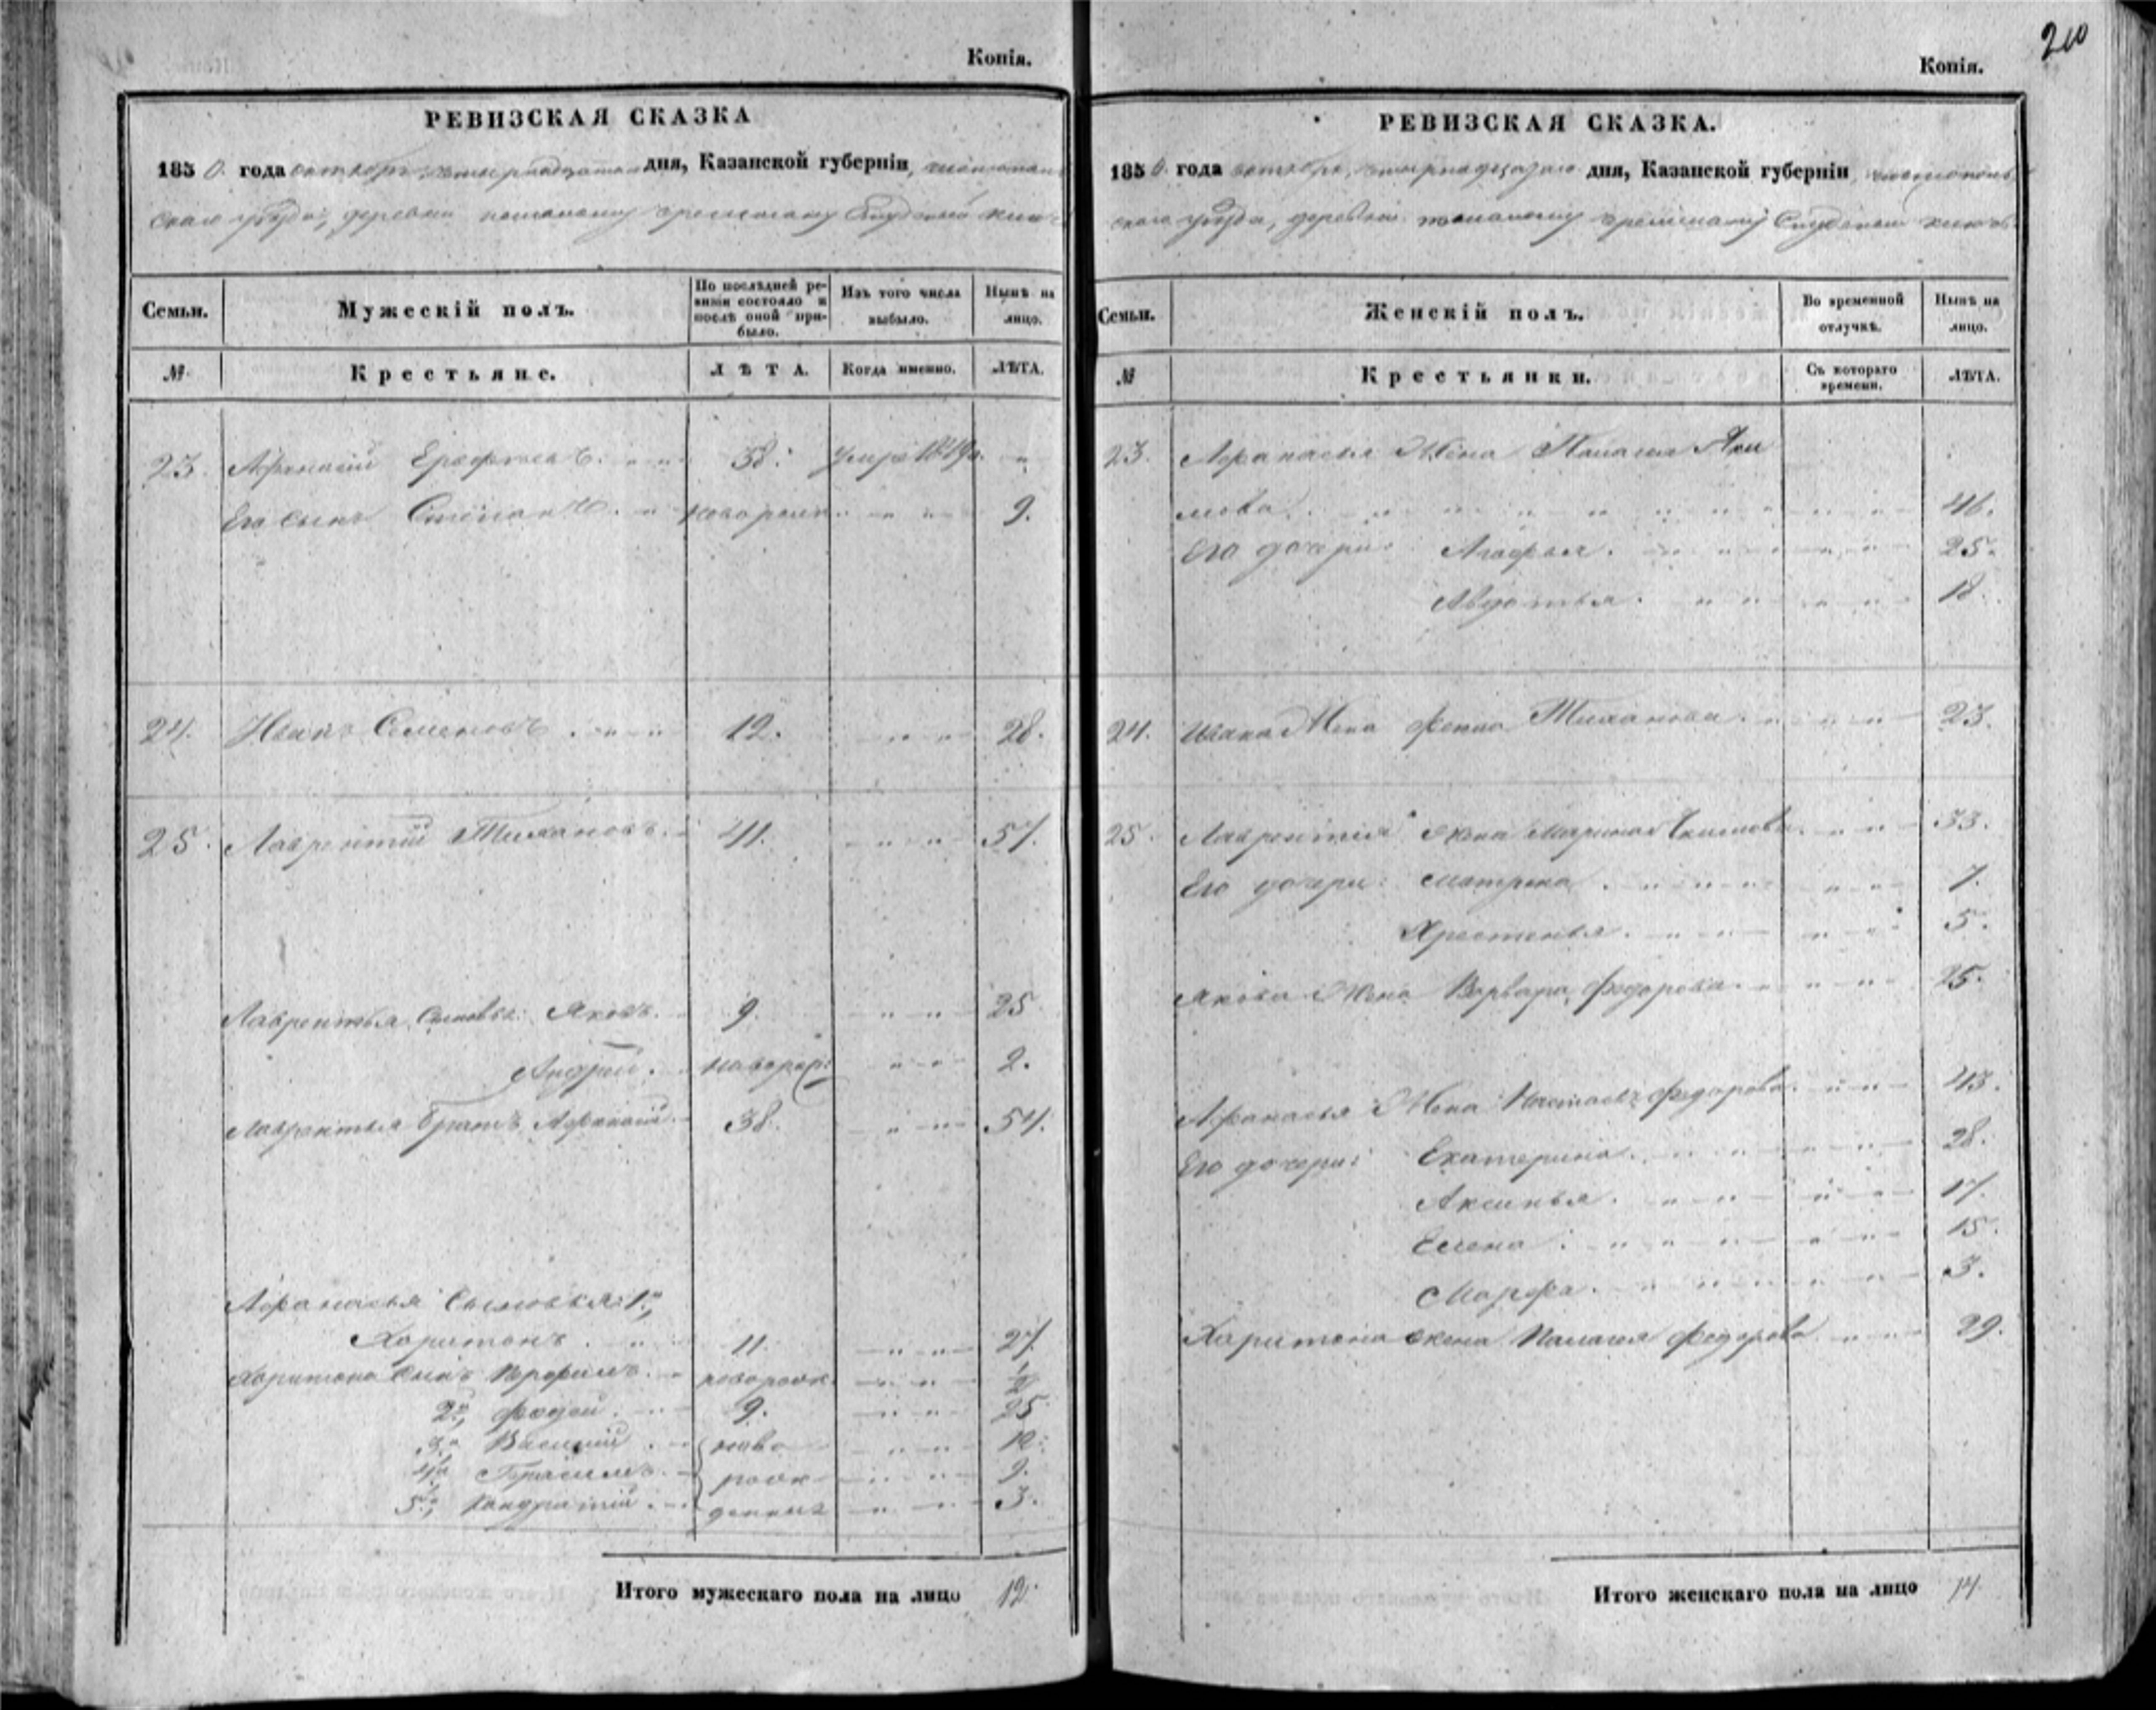 210
Копія.
РЕВИЗСКАЯ СКАЗКА
1850. года октября четырнадцатаго дня, Казанской губерніи,
скаго уѣзда, деревни
Семьи.
Мужескій полъ.
По послѣдней ревизіи состояло и послѣ оной прибыло.
Изъ того числа выбыло.
Нынѣ на лицо.
№
Крестьяне.
ЛѢТА.
Когда именно.
ЛѢТА.
23. Афанасій 58. 1849 "
Его сынъ Степанъ новорож 9.
24. Иванъ Семеновъ 12. 28.
25. Лаврентій Тихановъ 41. 57.
Лаврентья сыновья: Яковъ 9. 25
Андрей новорож: 2.
Лаврентья братъ Афанасій 38. 54.
Афанасья сыновья: 1й,
Харитонъ 11. 27.
Харитона сынъ новорож. 1/2
2й, Фадей 9. 25
3й, Василій ново 12.
4й, Герасимъ рож 9.
5й, Кондратій денные 3.
Итого мужескаго пола на лицо 12.
Копія.
РЕВИЗСКАЯ СКАЗКА.
1850. года октября четырнадцатаго дня, Казанской губерніи,
скаго уѣзда, деревни
Семьи.
Женскій полъ.
Во временной отлучкѣ.
Нынѣ на лицо.
№
Крестьянки.
Съ котораго времени.
ЛѢТА.
23. Афанасья жена Палагея Яки
мова 46.
Его дочери: Агафья. 25.
Авдотья. 18.
24. Ивана жена Фекла Тиханова 23.
25. Лаврентія жена Марина 33.
Его дочери: Матрена 7.
Хрестинья 5.
Якова жена Варвара Федорова 25.
Афанасья жена Настасья Федорова 43.
Его дочери: Екатерина 28.
Аксинья 17.
Елена 15.
Марфа 3.
Харитона жена Палагея Федорова 29.
Итого женскаго пола на лицо 14.